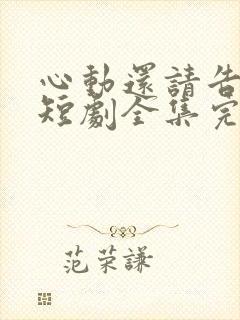 心動還請告
短劇全集完
范荣謙